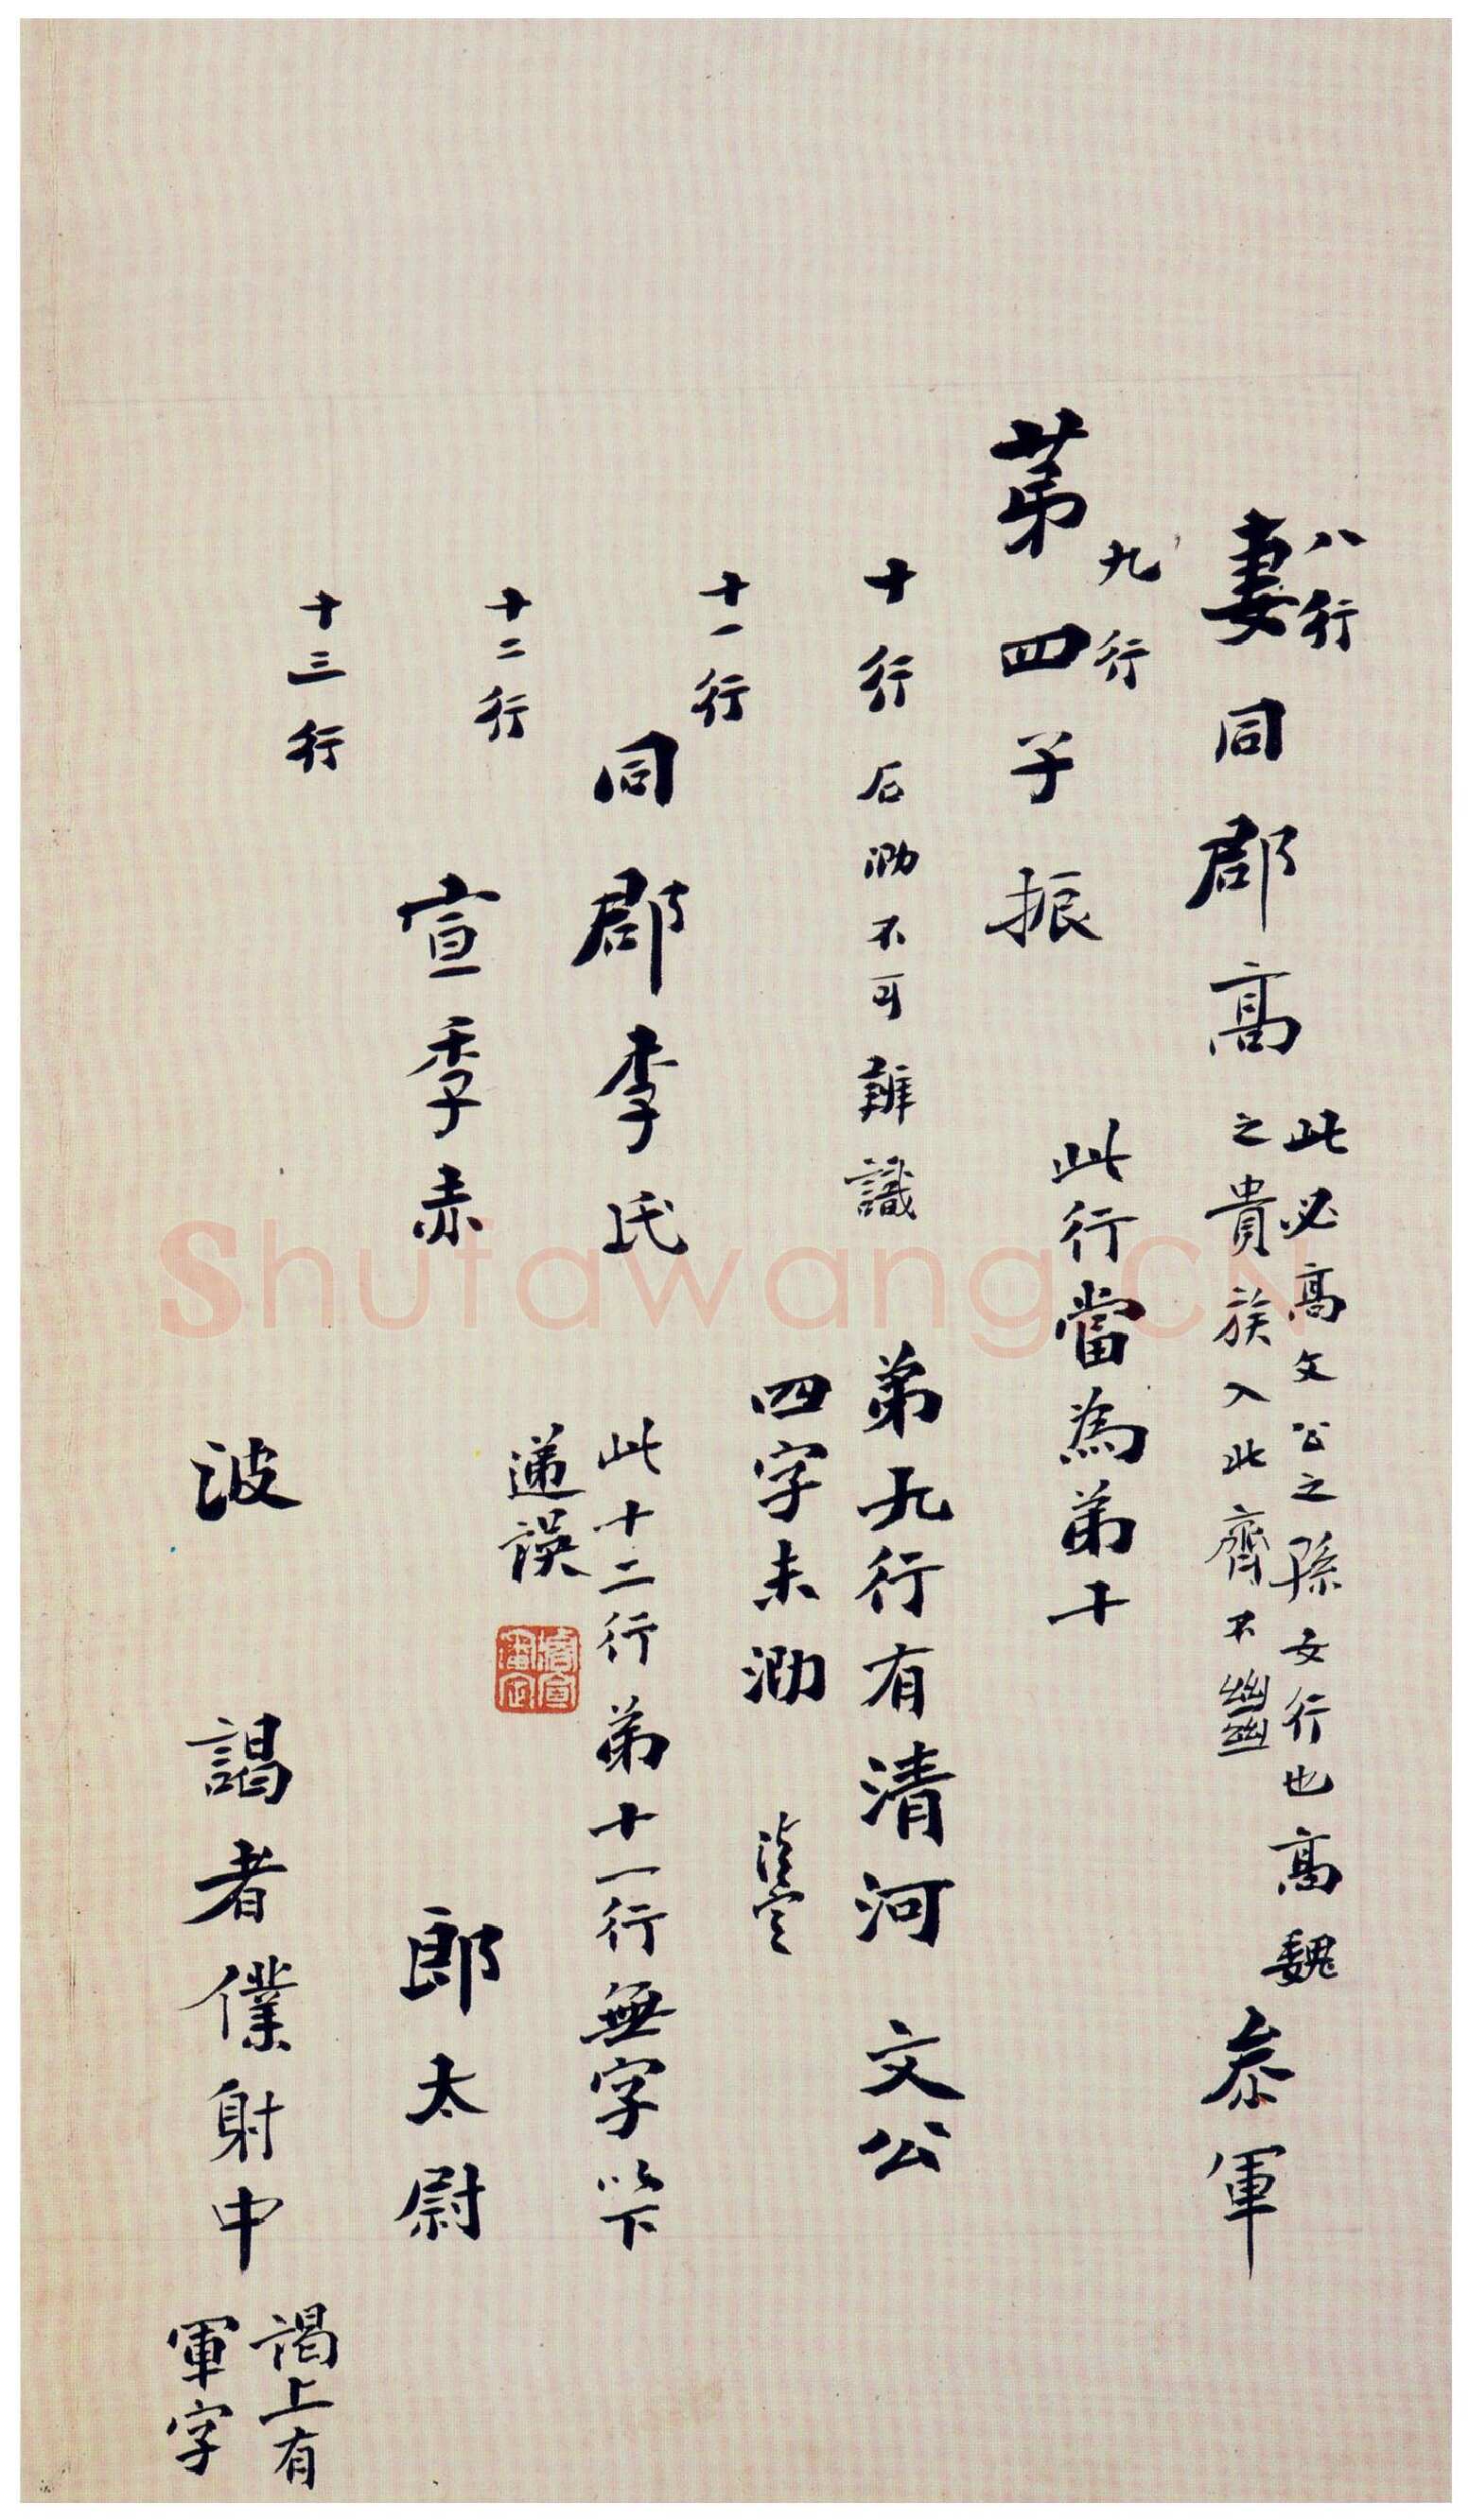 八行
妻同郡高
此必高文公之孫女行也高魏
之貴族入此齊不
叅軍
九行
第四子振
此行當為弟十
十行石泐不可辨識
弟九行有清河 文公
四字未泐
十一行
同郡李氏
此十二行弟十一行無字以下
遞誤
十二行
宣季赤 郎太尉
十三行
波 謁者僕射中
謁上有
軍字
Shufawang.CN